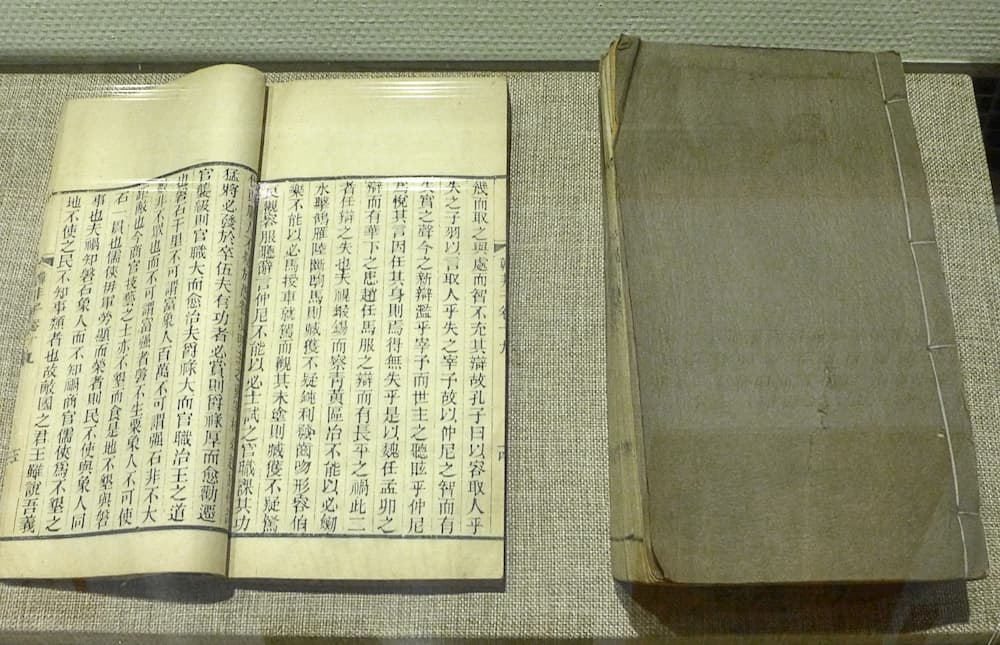 幾而取之與處而智不充其辯故孔子曰以容取人乎
失之子羽以言取人乎失之宰予故以仲尼之智而有
失實之聲今之新辯濫乎宰予而世主之聽眩乎仲尼
爲悅其言因任其身則焉得無失乎是以魏任孟卯之
辯而有華下之患趙任馬服之辯而有長平之禍此二
者任辯之失也夫視鍛錫而察青黃區冶不能以必劒
水擊鵠雁陸斷駒馬則臧獲不疑鈍利發齒吻形容伯
樂不能以必馬授車就駕而觀其末塗則臧獲不疑駑
良觀容服聽辭言仲尼不能以必士試之官職課其功
猛將必發於卒伍夫有功者必賞則爵祿厚而愈勸遷
官襲級則官職大而愈治夫爵祿大而官職治王之道
也磐石千里不可謂富象人百萬不可謂强石非不大
數非不衆也而不可謂富强者磐不生粟象人不可使
距敵也今商官技藝之士亦不墾而食是地不墾與磐
石一貫也儒俠毋軍勞顯而榮者則民不使與象人同
事也夫禍知磐石象人而不知禍商官儒俠爲不墾之
地不使之民不知事類者也故敵國之君王雖說吾義